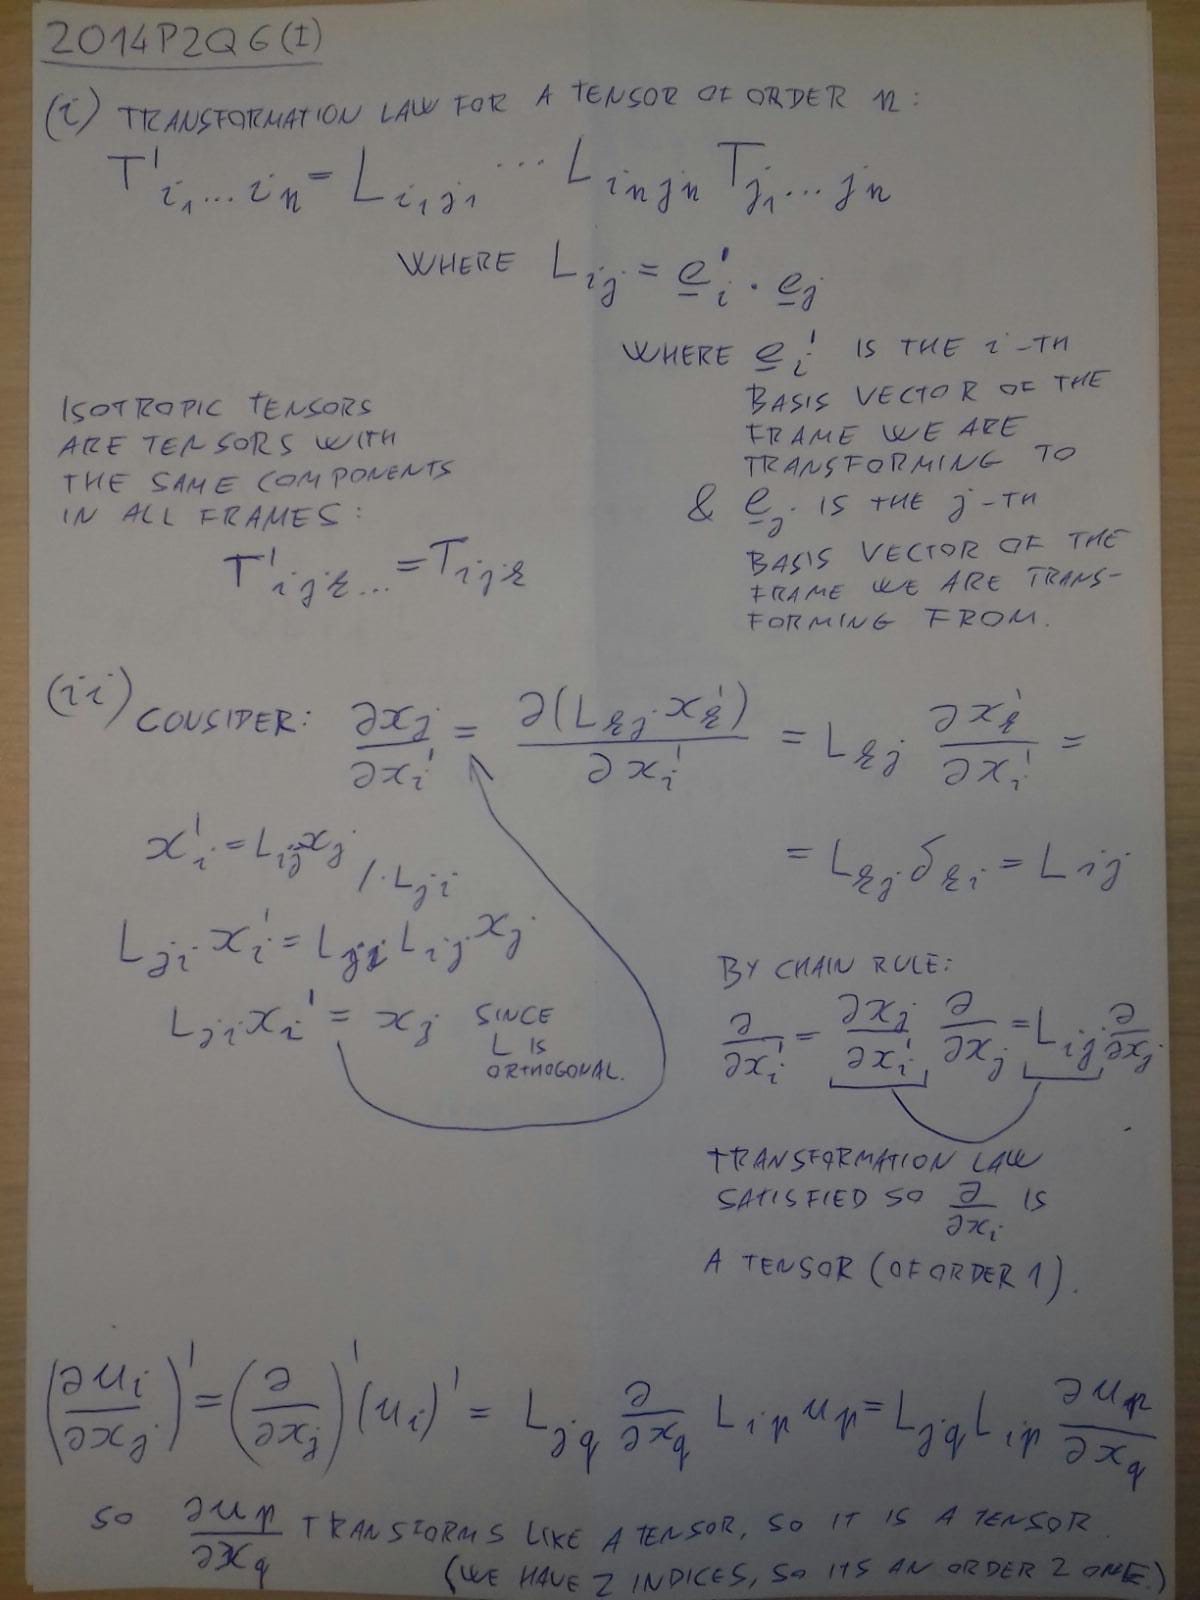 2014P2Q6(I)
(i) TRANSFORMATION LAW FOR A TENSOR OF ORDER n:
T'_{i_1...i_n} = L_{i_1 j_1} ... L_{i_n j_n} T_{j_1...j_n}
WHERE L_{ij} = e'_i · e_j
WHERE e_i' IS THE i-TH
BASIS VECTOR OF THE
FRAME WE ARE
TRANSFORMING TO
& e_j IS THE j-TH
BASIS VECTOR OF THE
FRAME WE ARE TRANS-
FORMING FROM.
ISOTROPIC TENSORS
ARE TENSORS WITH
THE SAME COMPONENTS
IN ALL FRAMES:
T'_{ijk...} = T_{ijk}
(ii) CONSIDER: ∂x_j/∂x_i' = ∂(L_{kj} x_k')/∂x_i' = L_{kj} ∂x_k'/∂x_i' =
= L_{kj} δ_{ki} = L_{ij}
x'_i = L_{ij} x_j /· L_{ji}
L_{ji} x_i' = L_{ji} L_{ij} x_j
L_{ji} x_i' = x_j SINCE
L IS
ORTHOGONAL.
BY CHAIN RULE:
∂/∂x_i' = ∂x_j/∂x_i' ∂/∂x_j = L_{ij} ∂/∂x_j
TRANSFORMATION LAW
SATISFIED SO ∂/∂x_i IS
A TENSOR (OF ORDER 1).
(∂u_i/∂x_j)' = (∂/∂x_j)' (u_i)' = L_{jq} ∂/∂x_q L_{ip} u_p = L_{jq} L_{ip} ∂u_p/∂x_q
SO ∂u_p/∂x_q TRANSFORMS LIKE A TENSOR, SO IT IS A TENSOR
(WE HAVE 2 INDICES, SO ITS AN ORDER 2 ONE.)